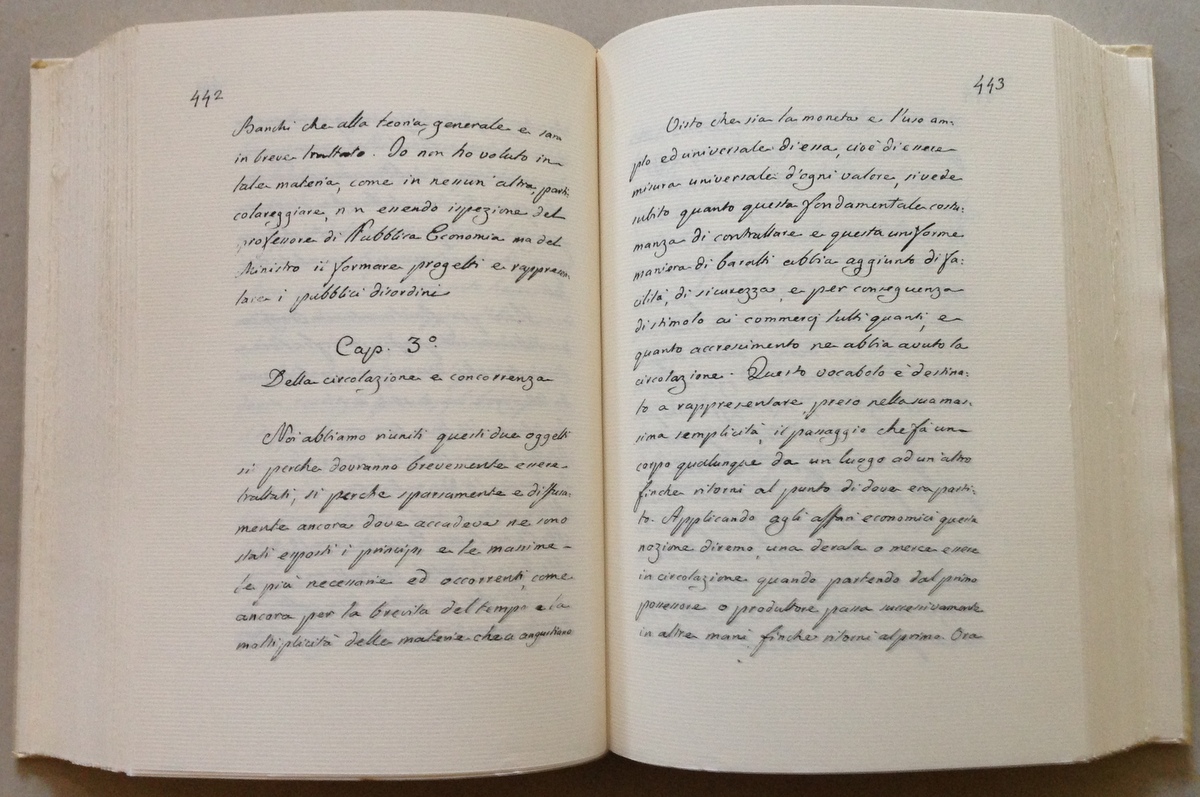 442
Banchi che alla teoria generale e sarà
in breve trattato. Io non ho voluto in
tale materia, come in nessun'altra, parti
colareggiare, n n essendo ispezione del
professore di Pubblica Economia ma del
Ministro il formare progetti e rappresen
tare i pubblici disordini
Cap. 3º
Della circolazione e concorrenza
Noi abbiamo riuniti questi due oggetti
si perche dovranno brevemente essere
trattati, si perche sparsamente e diffusa-
mente ancora dove accadeva ne sono
stati esposti i principj e le massime
le più necessarie ed occorrenti, come
ancora per la brevita del tempo e la
moltiplicità delle materie che a angustiano
443
Visto che sia la moneta e l'uso am-
plo ed universale di essa, cioè di essere
misura universale d'ogni valore, si vede
subito quanto questa fondamentale costu-
manza di contrattare e questa uniforme
maniera di baratti abbia aggiunto di fa-
cilità, di sicurezza, e per conseguenza
di stimolo ai commercj tutti quanti, e
quanto accrescimento ne abbia avuto la
circolazione. Questo vocabolo è destina-
to a rappresentare preso nella sua mas-
sima semplicità, il passaggio che fà un
corpo qualunque da un luogo ad un'altro
finche ritorni al punto di dove era parti-
to. Applicando agli affari economici questa
nozione diremo, una derata o merce essere
in circolazione quando partendo dal primo
possessore o produttore passa successivamente
in altre mani finche ritorni al primo. Ora